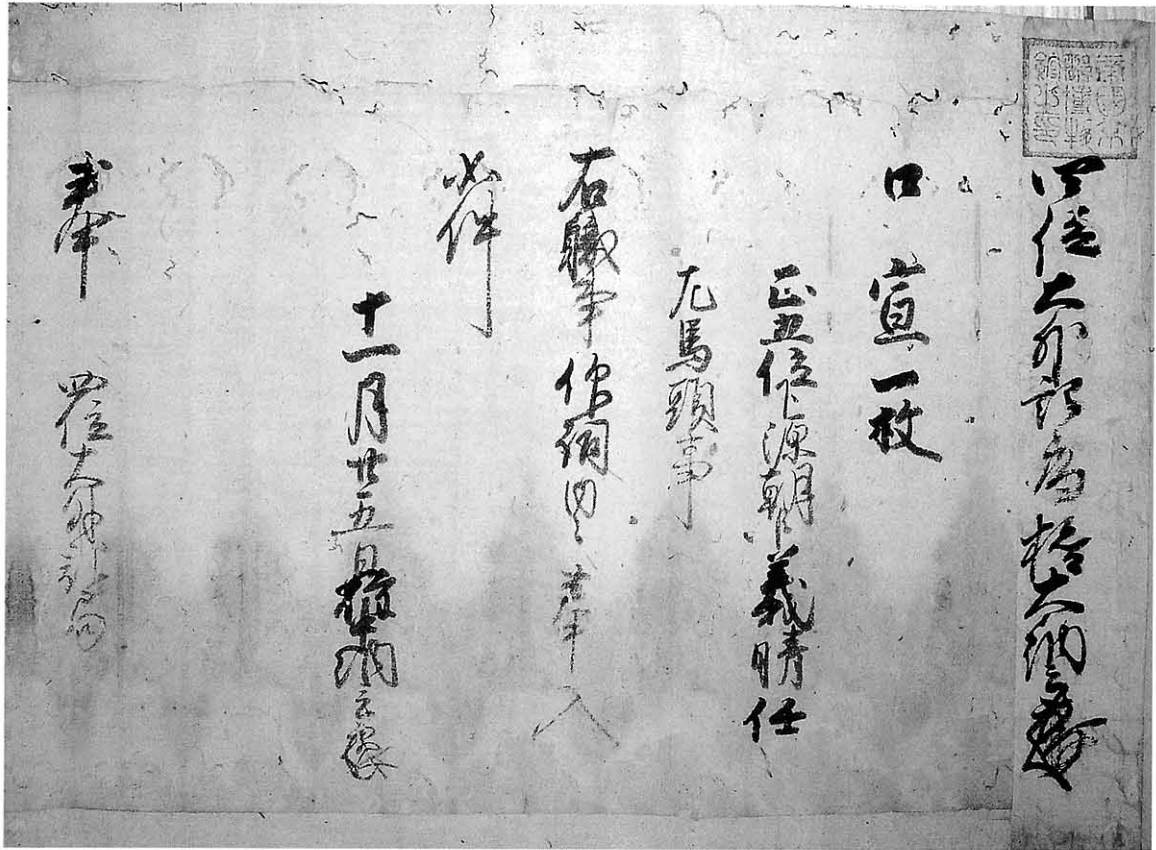 四位大外記局 権大納言
口 宣一枚
正五位下源朝臣義晴任
左馬頭事
右職事仰詞内々奉入
如件
十一月廿五日権大納言
四位大外記局